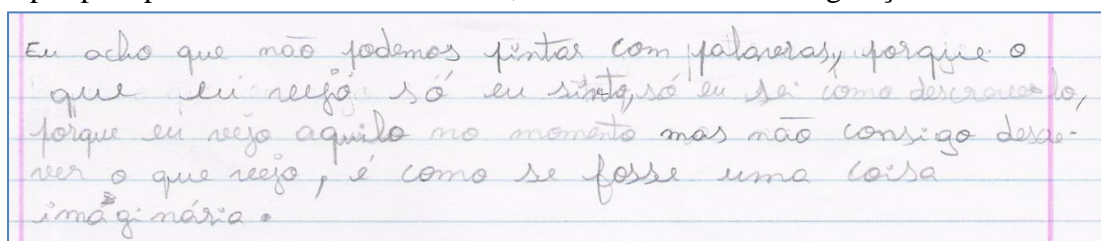 Eu acho que não podemos pintar com palavras, porque o
que eu vejo só eu sinto, só eu sei como descreve-lo,
porque eu vejo aquilo no momento mas não consigo descre-
ver o que vejo, é como se fosse uma coisa
imáginária.